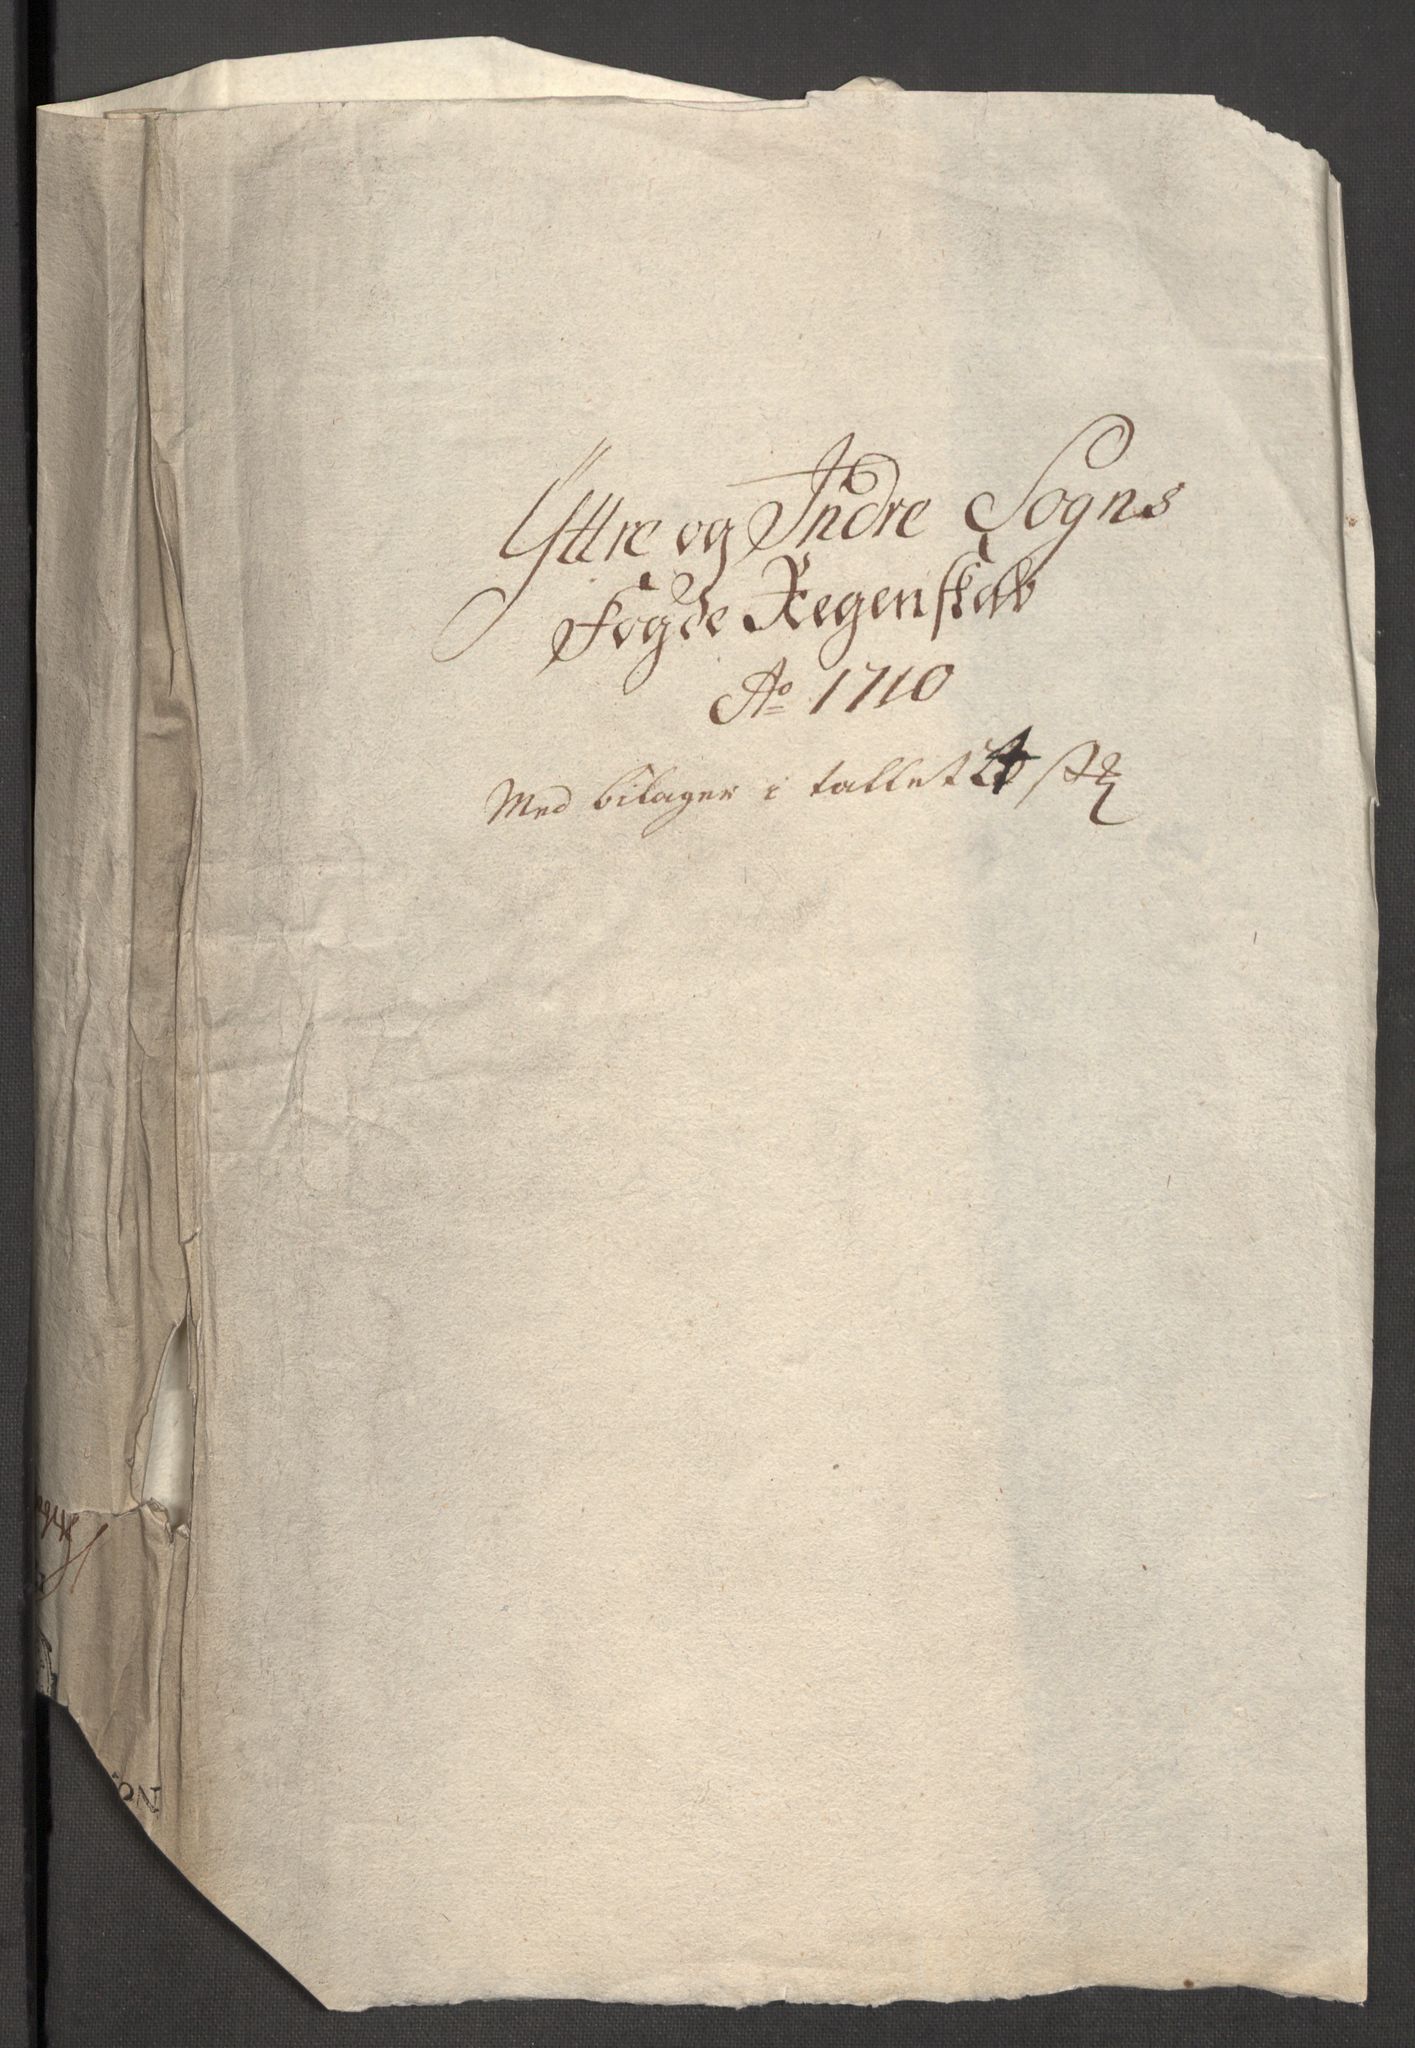 Yttre og Indre Sogns
Fogde Regenskab
Ao 1710
Med bilager i tallet